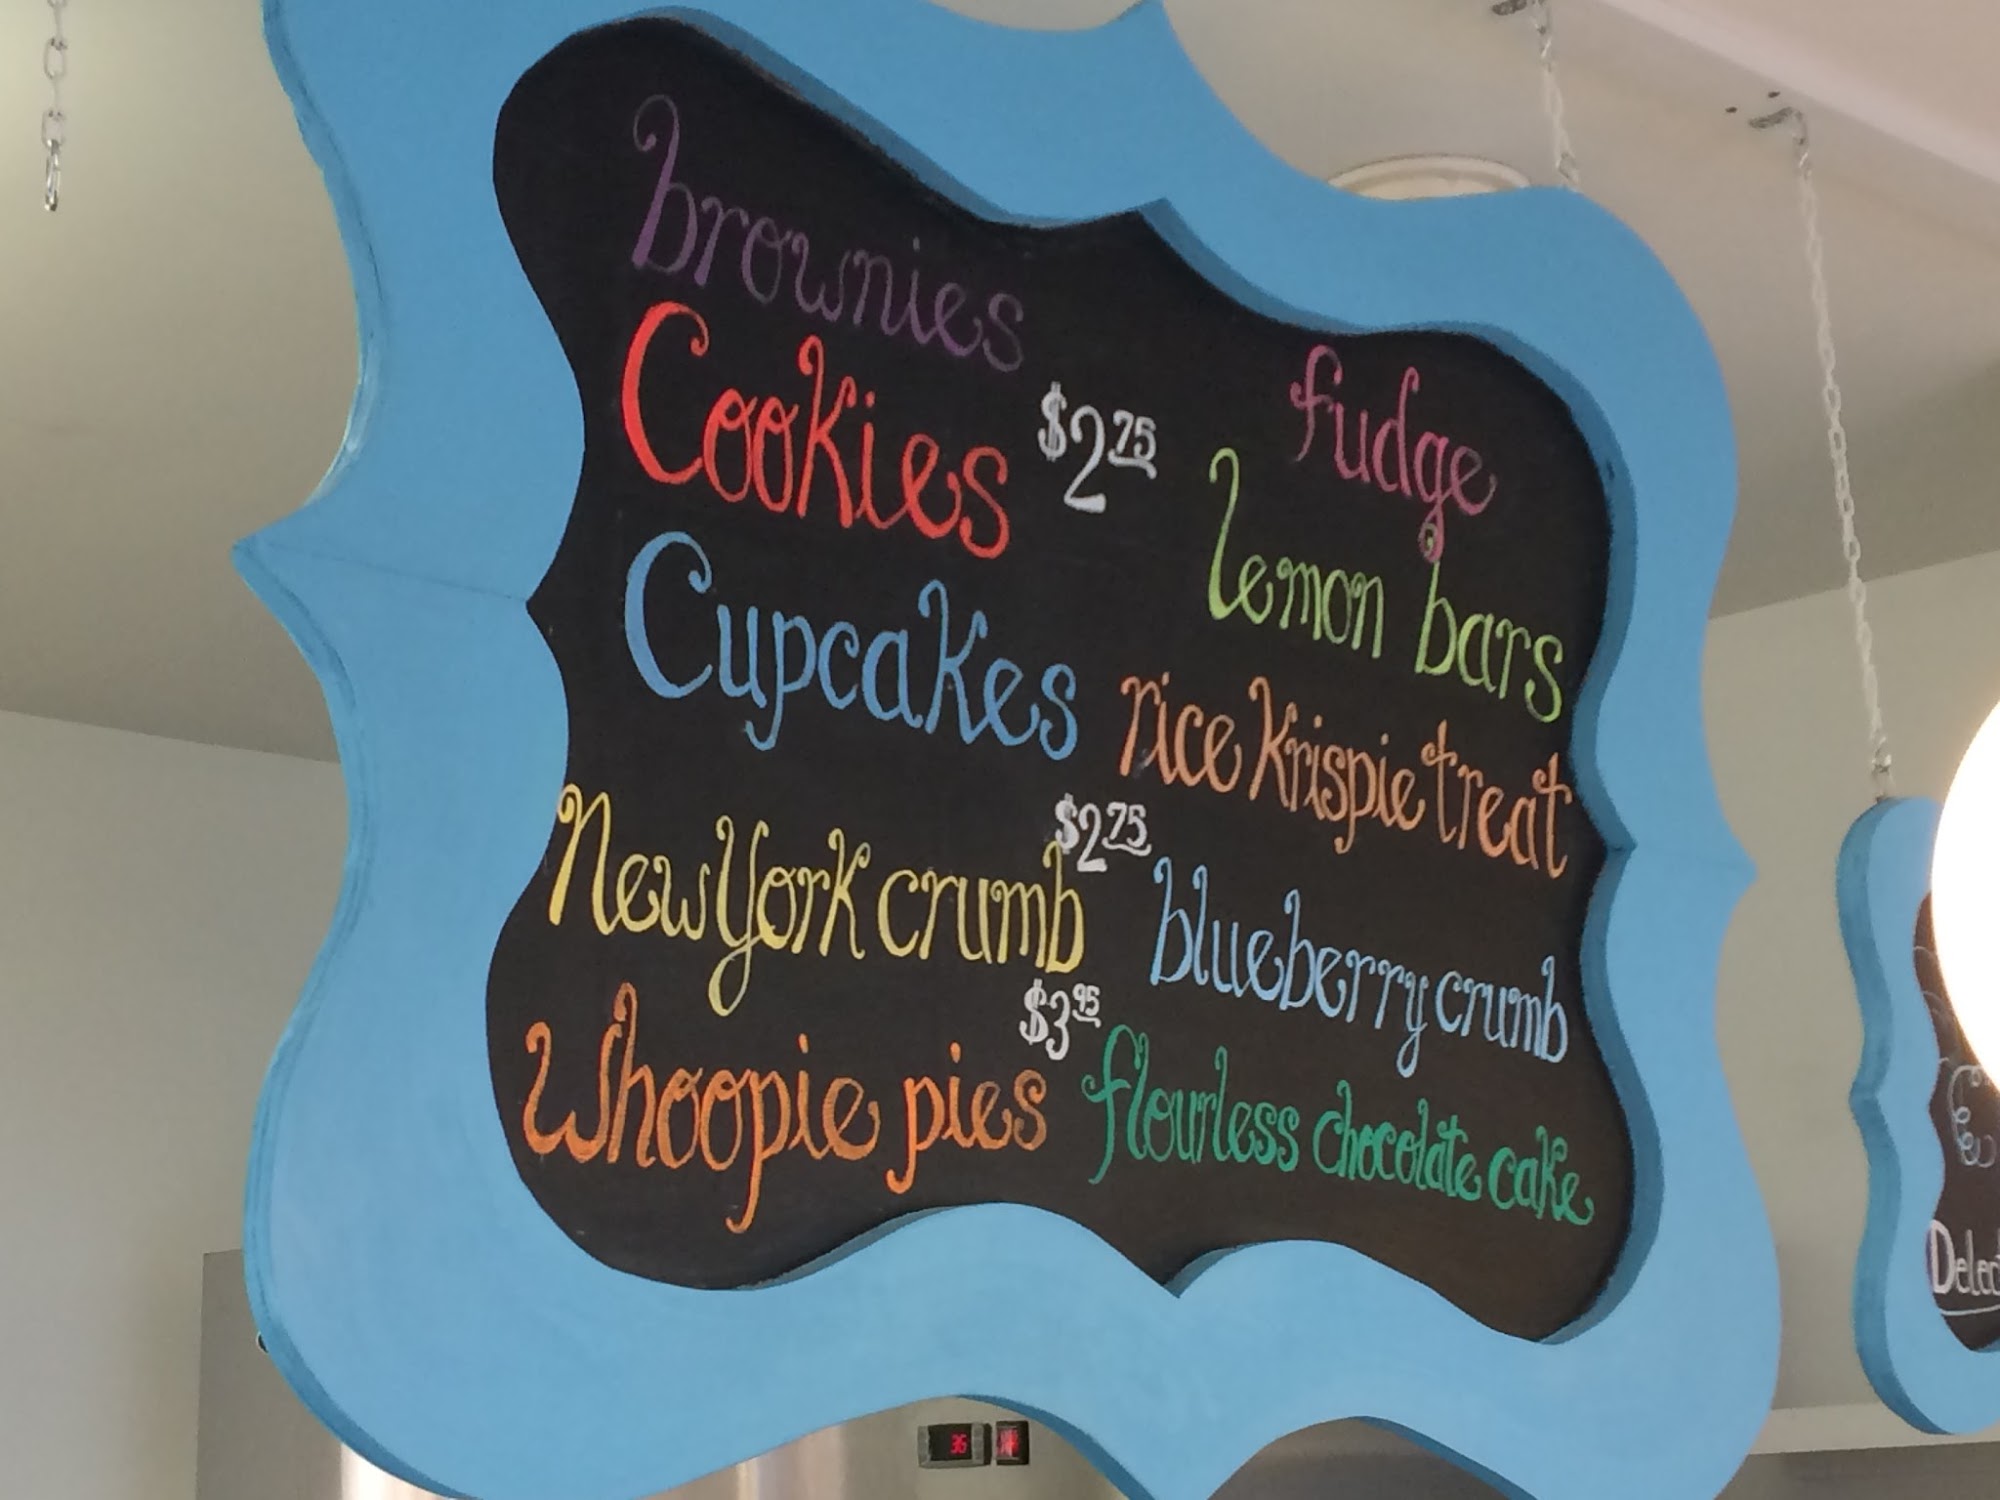 brownies
Cookies $2.75
Cupcakes
New York crumb $2.75
Whoopie pies $3.95
fudge
lemon bars
rice Krispie treat
blueberry crumb
flourless chocolate cake
36